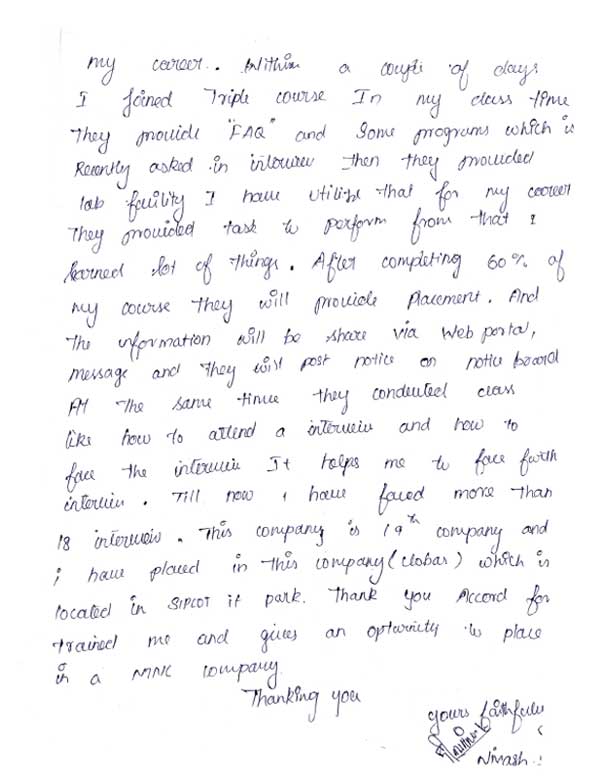 my career. Within a couple of days
I joined Triple course In my class time
They provide "FAQ" and Some programs which is
Recently asked in interview Then they provided
lab facility I have utilize that for my career
They provided task to perform from that I
learned lot of things. After completing 60% of
my course they will provide Placement. And
The information will be share via Web portal,
message and they will post notice on notice board
At The same time they conducted class
like how to attend a interview and how to
face the interview It helps me to face
interview. Till now I have faced more Than
18 interview. This company is 19th company and
i have placed in This company (Clobas) which is
located in SIPCOT it park. Thank you Accord for
trained me and gives an to place
in a MNC company.
Thanking you
yours faithfully